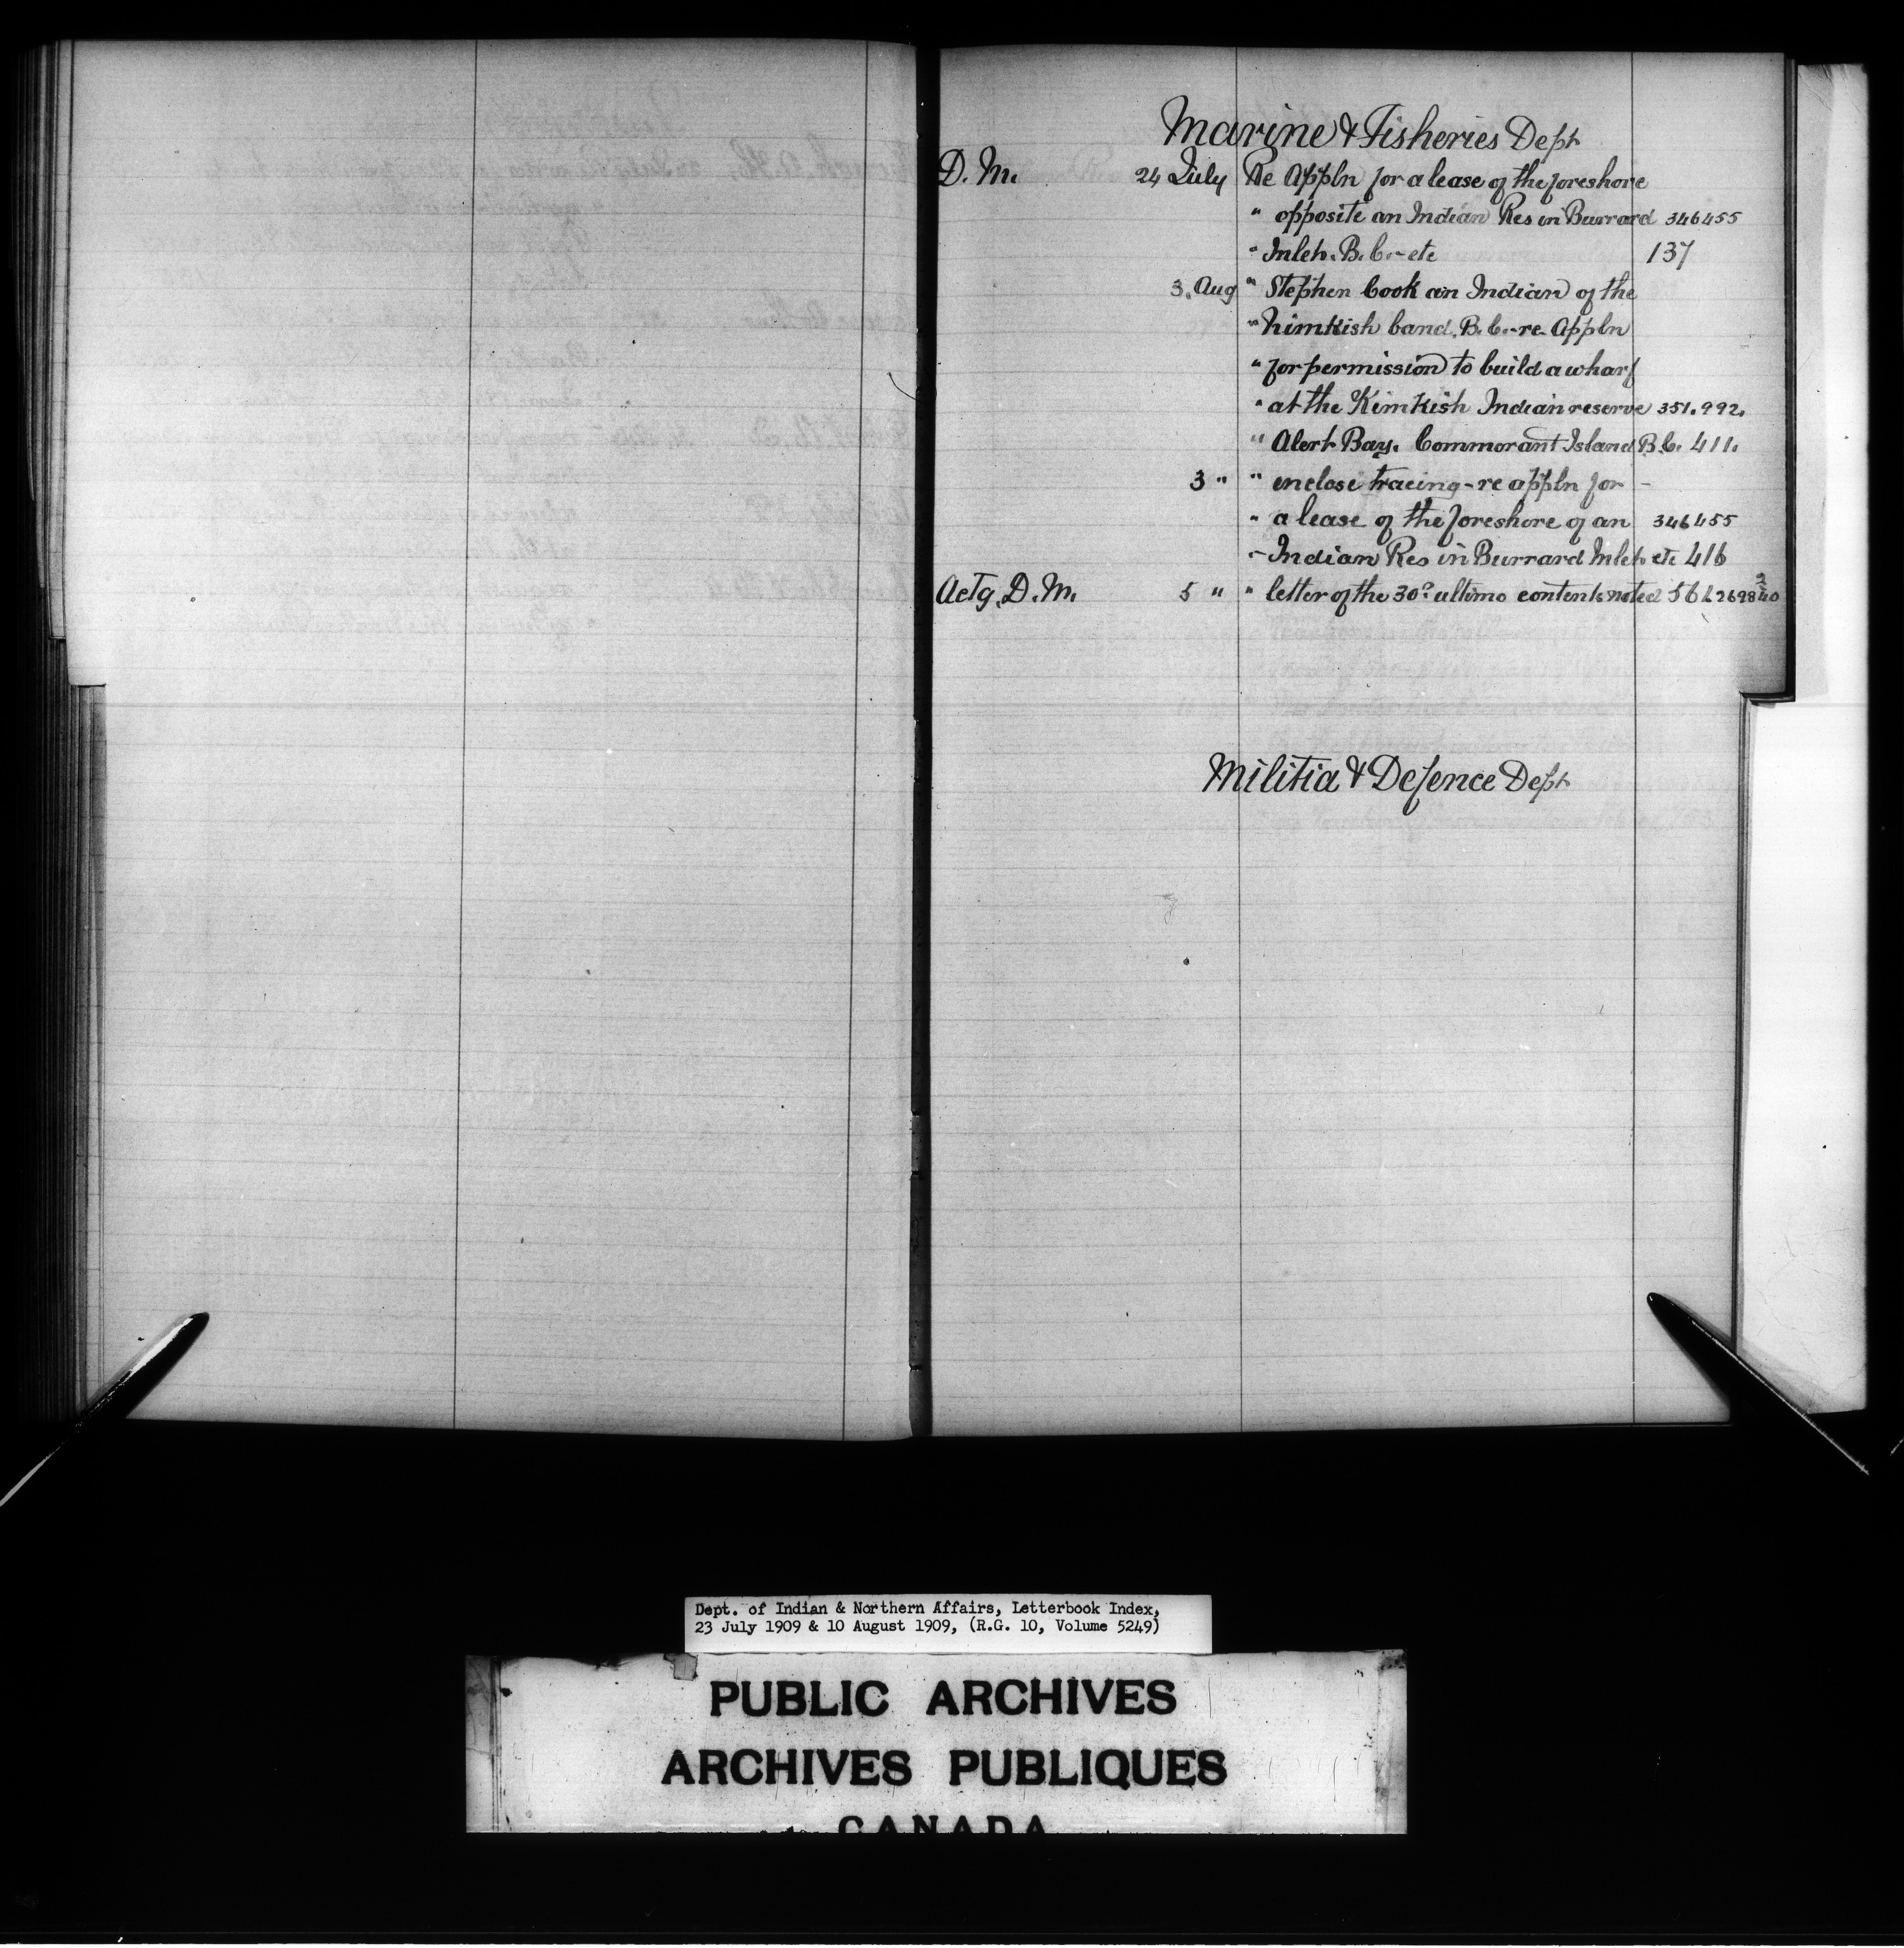 Marine & Fisheries Dept
D. M. 24 July Re Appln for a lease of the foreshore
" opposite an Indian Res in Burrard 346455
" Inlet. B.C. - etc 137
3. Aug " Stephen Cook an Indian of the
" Nimkish band. B.C. - re Appln
" for permission to build a wharf
" at the Kimkish Indian reserve 351.992.
" Alert Bay. Commorant Island B.C. 411.
3 " " enclose tracing - re appln for -
" a lease of the foreshore of an 346455
" - Indian Res in Burrard Inlet etc 416
Actg. D. M. 5 " " letter of the 30º ultimo contents noted
Militia & Defence Dept
Dept. of Indian & Northern Affairs, Letterbook Index,
23 July 1909 & 10 August 1909, (R.G. 10, Volume 5249)
PUBLIC ARCHIVES
ARCHIVES PUBLIQUES
CANADA